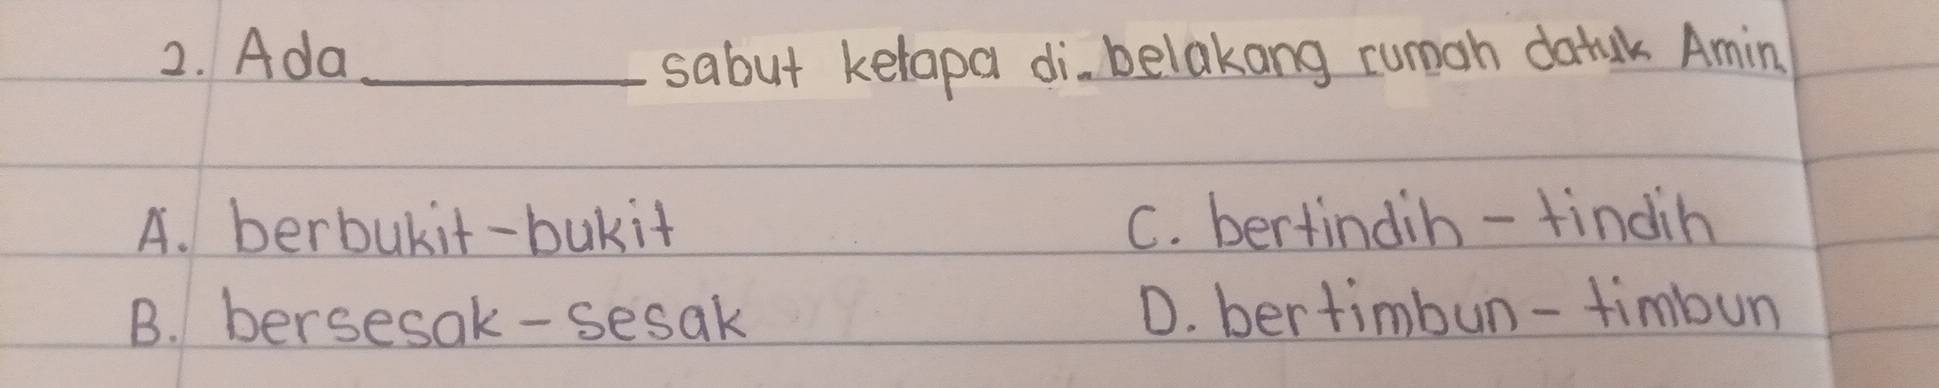 2. Ada __________ sabut kelapa di belakang rumah datuk Amin
A. berbukit-bukit
C. bertindih - tindih
B. bersesak - sesak
D. bertimbun - timbun